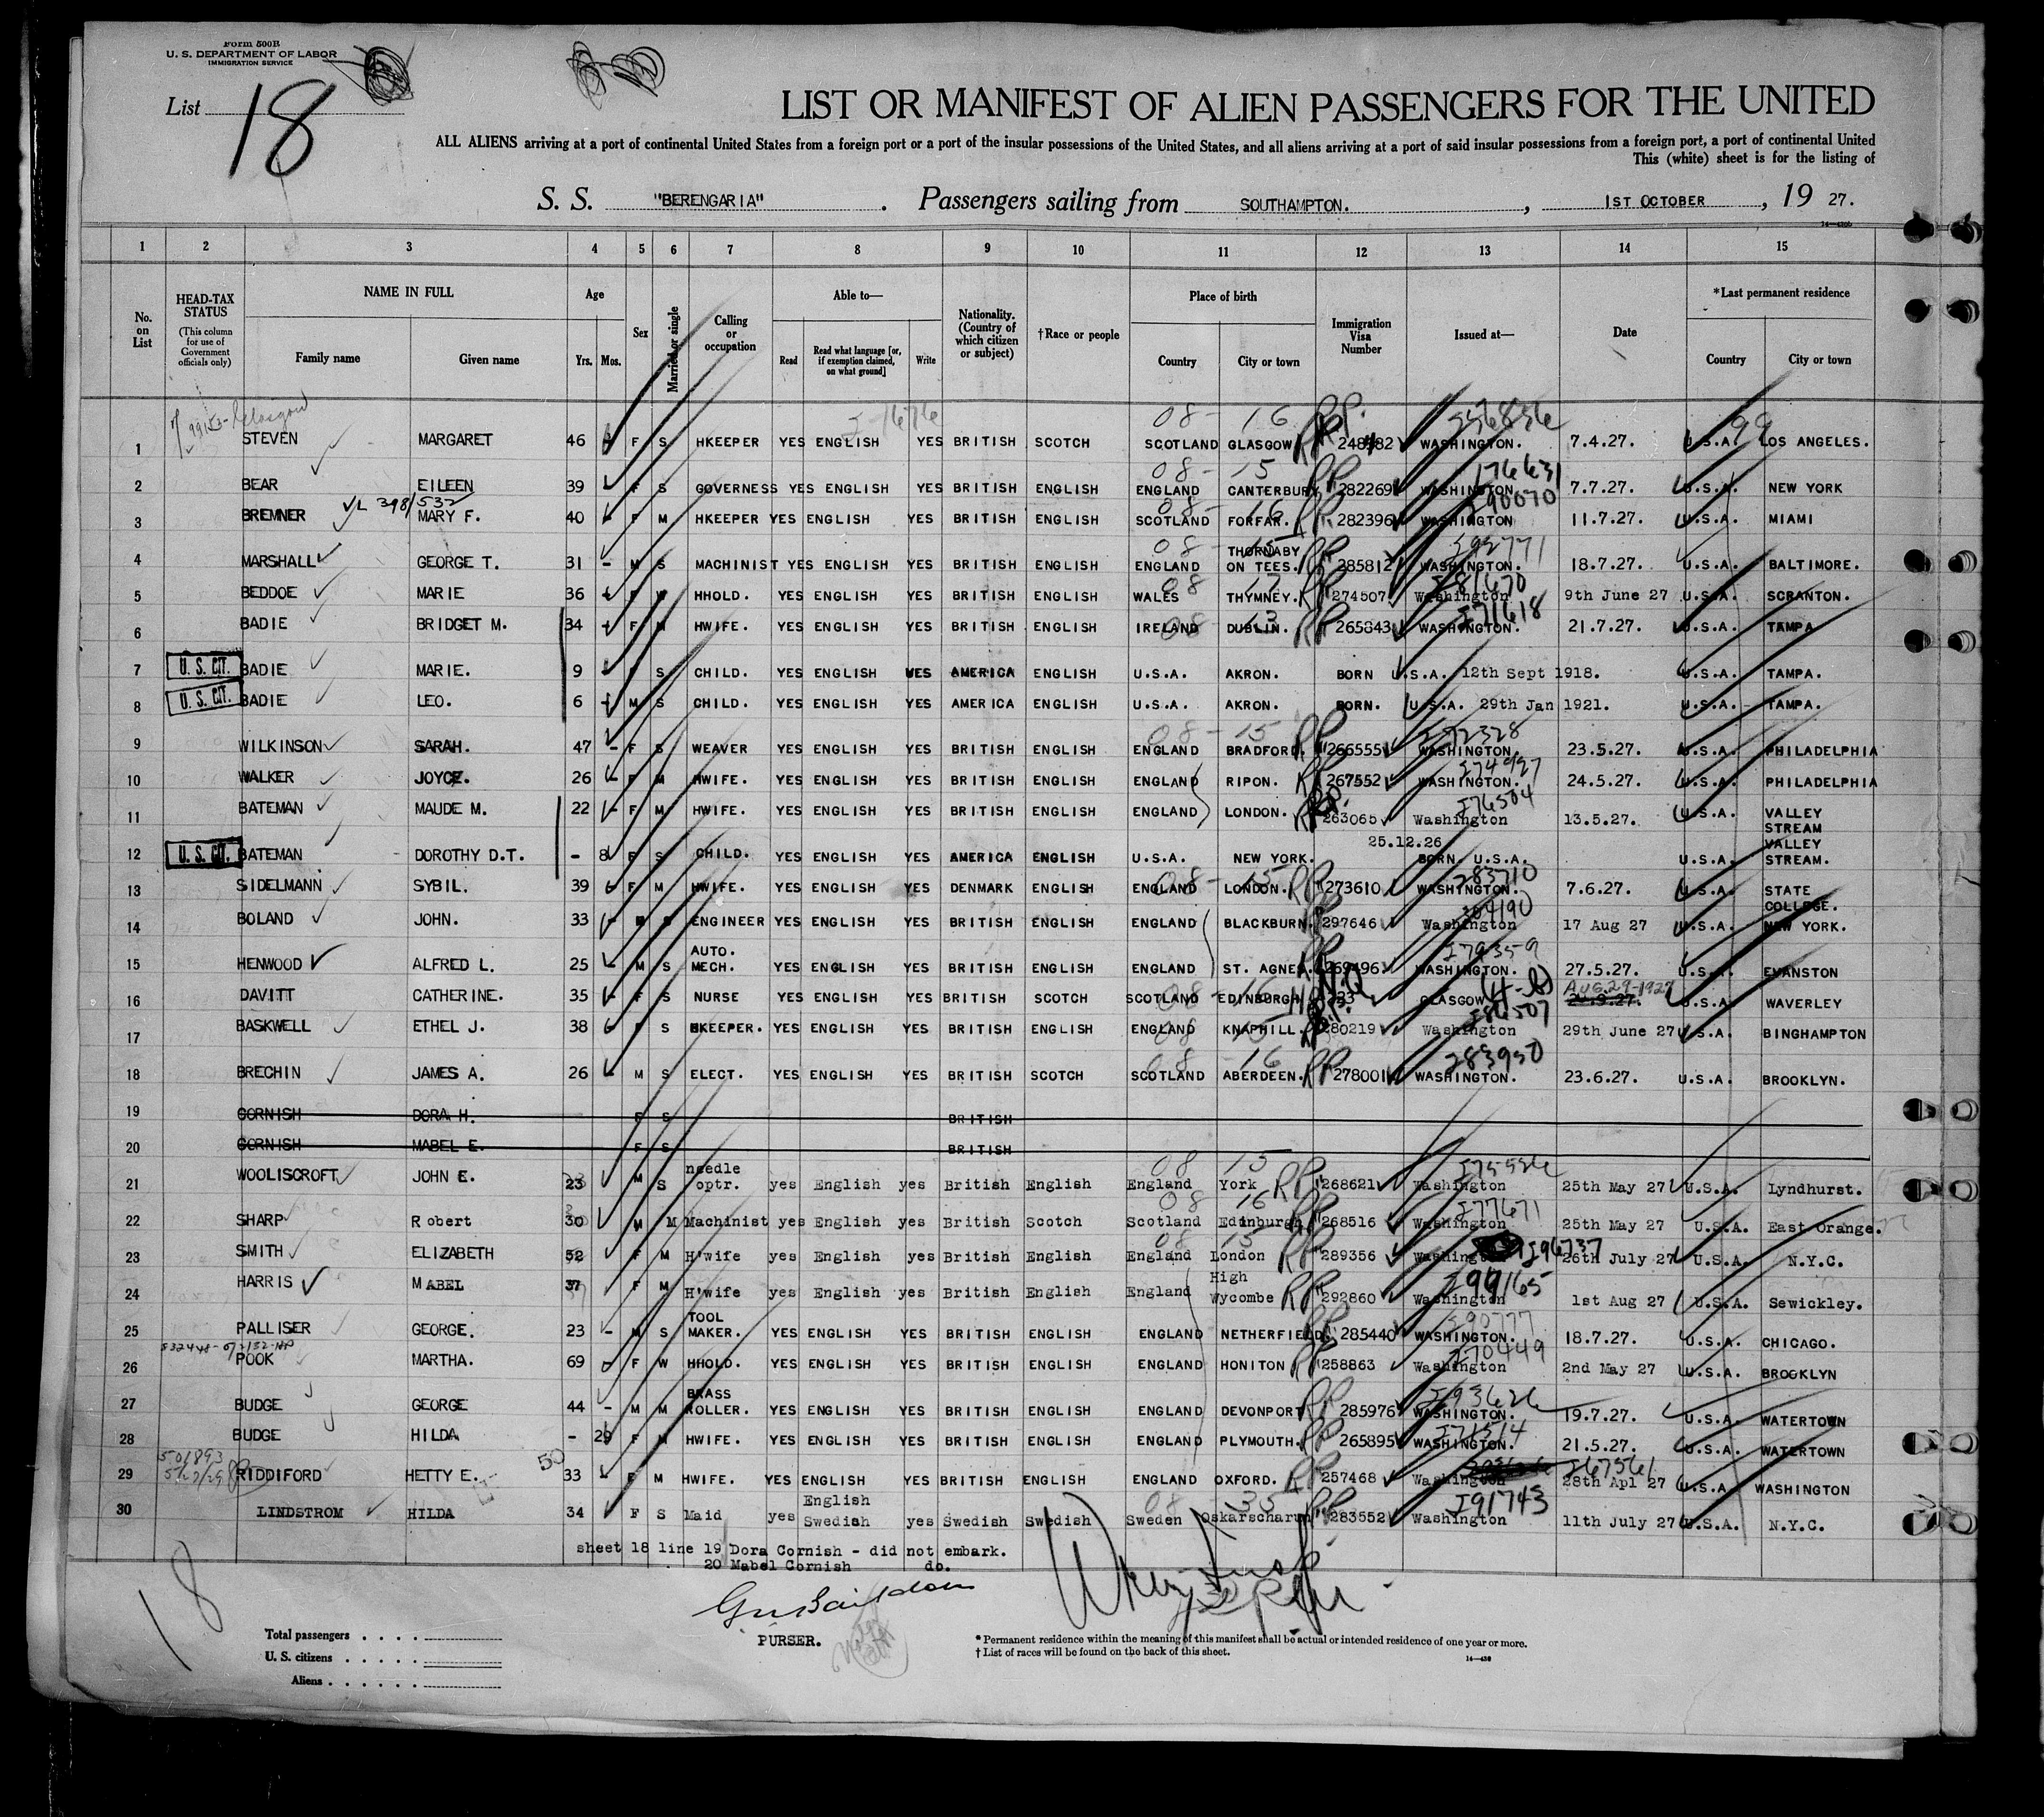 Form 500B
U. S. DEPARTMENT OF LABOR
IMMIGRATION SERVICE
List 18
LIST OR MANIFEST OF ALIEN PASSENGERS FOR THE UNITED
ALL ALIENS arriving at a port of continental United States from a foreign port or a port of the insular possessions of the United States, and all aliens arriving at a port of said insular possessions from a foreign port, a port of continental United
This (white) sheet is for the listing of
S. S. "BERENGARIA" . Passengers sailing from SOUTHAMPTON. , 1ST OCTOBER , 19 27.
1 2 3 4 5 6 7 8 9 10 11 12 13 14 15
No. on List
HEAD-TAX STATUS (This column for use of Government officials only)
NAME IN FULL
Family name Given name
Age
Yrs. Mos.
Sex
Married or single
Calling or occupation
Able to—
Read Read what language [or, if exemption claimed, on what ground] Write
Nationality. (Country of which citizen or subject)
†Race or people
Place of birth
Country City or town
Immigration Visa Number
Issued at—
Date
*Last permanent residence
Country City or town
1 STEVEN MARGARET 46 F S HKEEPER YES ENGLISH YES BRITISH SCOTCH SCOTLAND GLASGOW WASHINGTON. 7.4.27. U.S.A. LOS ANGELES.
2 BEAR EILEEN 39 F S GOVERNESS YES ENGLISH YES BRITISH ENGLISH ENGLAND CANTERBURY 282269 WASHINGTON. 176631 7.7.27. U.S.A. NEW YORK
3 BREMNER MARY F. 40 F M HKEEPER YES ENGLISH YES BRITISH ENGLISH SCOTLAND FORFAR. 282396 WASHINGTON 11.7.27. U.S.A. MIAMI
4 MARSHALL GEORGE T. 31 - M S MACHINIST YES ENGLISH YES BRITISH ENGLISH ENGLAND THORNABY ON TEES. 285812 WASHINGTON. 18.7.27. U.S.A. BALTIMORE.
5 BEDDOE MARIE 36 F HHOLD. YES ENGLISH YES BRITISH ENGLISH WALES THYMNEY. 274507 Washington 9th June 27 U.S.A. SCRANTON.
6 BADIE BRIDGET M. 34 F M HWIFE. YES ENGLISH YES BRITISH ENGLISH IRELAND DUBLIN. 265843 WASHINGTON. I71618 21.7.27. U.S.A. TAMPA
7 U. S. CIT. BADIE MARIE. 9 F S CHILD. YES ENGLISH YES AMERICA ENGLISH U.S.A. AKRON. BORN U.S.A. 12th Sept 1918. U.S.A. TAMPA.
8 U. S. CIT. BADIE LEO. 6 M S CHILD. YES ENGLISH YES AMERICA ENGLISH U.S.A. AKRON. BORN. U.S.A. 29th Jan 1921. U.S.A. TAMPA.
9 WILKINSON SARAH. 47 - F S WEAVER YES ENGLISH YES BRITISH ENGLISH ENGLAND BRADFORD. 266555 WASHINGTON. 23.5.27. U.S.A. PHILADELPHIA
10 WALKER JOYCE. 26 - F M HWIFE. YES ENGLISH YES BRITISH ENGLISH ENGLAND RIPON. 267552 WASHINGTON. 24.5.27. U.S.A. PHILADELPHIA
11 BATEMAN MAUDE M. 22 - F M HWIFE. YES ENGLISH YES BRITISH ENGLISH ENGLAND LONDON. 263065 Washington I76504 13.5.27. U.S.A. VALLEY STREAM
12 U. S. CIT. BATEMAN DOROTHY D.T. - 8 F S CHILD. YES ENGLISH YES AMERICA ENGLISH U.S.A. NEW YORK. 25.12.26 BORN. U.S.A. U.S.A. VALLEY STREAM.
13 SIDELMANN SYBIL. 39 F M HWIFE. YES ENGLISH YES DENMARK ENGLISH ENGLAND LONDON. 273610 WASHINGTON. 7.6.27. U.S.A. STATE COLLEGE.
14 BOLAND JOHN. 33 - M S ENGINEER YES ENGLISH YES BRITISH ENGLISH ENGLAND BLACKBURN. 297646 Washington 17 Aug 27 U.S.A. NEW YORK.
15 HENWOOD ALFRED L. 25 - M S AUTO. MECH. YES ENGLISH YES BRITISH ENGLISH ENGLAND ST. AGNES. 269496 WASHINGTON. I79359 27.5.27. U.S.A. EVANSTON
16 DAVITT CATHERINE. 35 - F S NURSE YES ENGLISH YES BRITISH SCOTCH SCOTLAND EDINBURGH GLASGOW AUG 29-1927 U.S.A. WAVERLEY
17 BASKWELL ETHEL J. 38 F S HKEEPER. YES ENGLISH YES BRITISH ENGLISH ENGLAND KNAPHILL. 280219 Washington 29th June 27 U.S.A. BINGHAMPTON
18 BRECHIN JAMES A. 26 - M S ELECT. YES ENGLISH YES BRITISH SCOTCH SCOTLAND ABERDEEN. 278001 WASHINGTON. 283950 23.6.27. U.S.A. BROOKLYN.
19 CORNISH DORA H. F S BRITISH
20 CORNISH MABEL E. F S BRITISH
21 WOOLISCROFT JOHN E. 23 M S needle optr. yes English yes British English England York 268621 Washington 25th May 27 U.S.A. Lyndhurst.
22 SHARP Robert 30 M M Machinist yes English yes British Scotch Scotland Edinburgh 268516 Washington I77671 25th May 27 U.S.A. East Orange.
23 SMITH ELIZABETH 52 F M H'wife yes English yes British English England London 289356 Washington I96737 26th July 27 U.S.A. N.Y.C.
24 HARRIS MABEL 37 F M H'wife yes English yes British English England High Wycombe 292860 Washington 1st Aug 27 U.S.A. Sewickley.
25 PALLISER GEORGE. 23 - M S TOOL MAKER. YES ENGLISH YES BRITISH ENGLISH ENGLAND NETHERFIELD. 285440 WASHINGTON. 18.7.27. U.S.A. CHICAGO.
26 POOK MARTHA. 69 - F W HHOLD. YES ENGLISH YES BRITISH ENGLISH ENGLAND HONITON 258863 Washington I70449 2nd May 27 U.S.A. BROOKLYN
27 BUDGE GEORGE 44 - M M BRASS ROLLER. YES ENGLISH YES BRITISH ENGLISH ENGLAND DEVONPORT 285976 WASHINGTON. 19.7.27. U.S.A. WATERTOWN
28 BUDGE HILDA - 29 F M HWIFE. YES ENGLISH YES BRITISH ENGLISH ENGLAND PLYMOUTH. 265895 WASHINGTON. 21.5.27. U.S.A. WATERTOWN
29 RIDDIFORD HETTY E. 33 - F M HWIFE. YES ENGLISH YES BRITISH ENGLISH ENGLAND OXFORD. 257468 Washington I67561 28th Apl 27 U.S.A. WASHINGTON
30 LINDSTROM HILDA 34 F S Maid yes English Swedish yes Swedish Swedish Sweden Oskarscharum 283552 Washington I91743 11th July 27 U.S.A. N.Y.C.
sheet 18 line 19 Dora Cornish - did not embark.
20 Mabel Cornish do.
18
PURSER.
Total passengers . . . .
U. S. citizens . . . . .
Aliens . . . . . .
* Permanent residence within the meaning of this manifest shall be actual or intended residence of one year or more.
† List of races will be found on the back of this sheet.
14—439